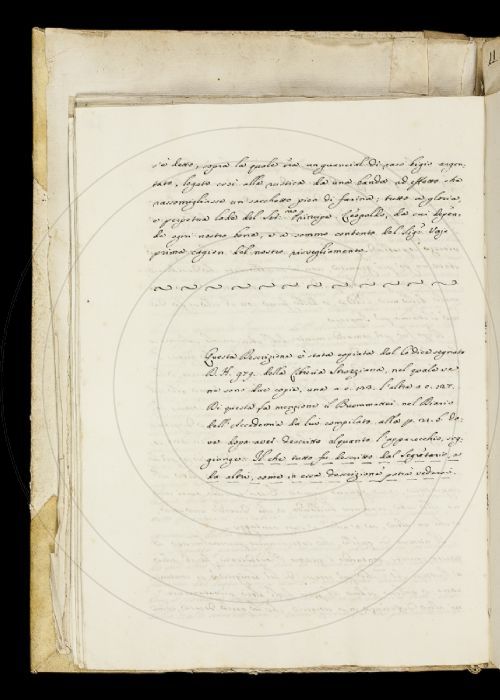 s'è detto, sopra la quale era un guancial di raso bigio argen-
tato, legato così alla rustica da una banda ad effetto che
rassomigliasse un sacchetto pien di farina; tutto a gloria,
e perpetua lode del Ser.mo Principe Leopoldo, da cui depen-
de ogni nostro bene, e a sommo contento del Sig.r Vajo
prima cagion del nostro risvegliamento.
Questa Descrizione è stata copiata dal Codice segnato
della Libreria Strozziana, nel quale ve
ne sono due copie, una a c. l'altra a c.
Di questa fa menzione il Buommattei nel Diario
dell'Accademia da lui compilato alla p.
ve dopo aver descritto alquanto l'apparecchio, sog-
giunge: Il che tutto fu descritto dal Segretario, o
da altri, come in essa descrizione potrà vedersi.
11